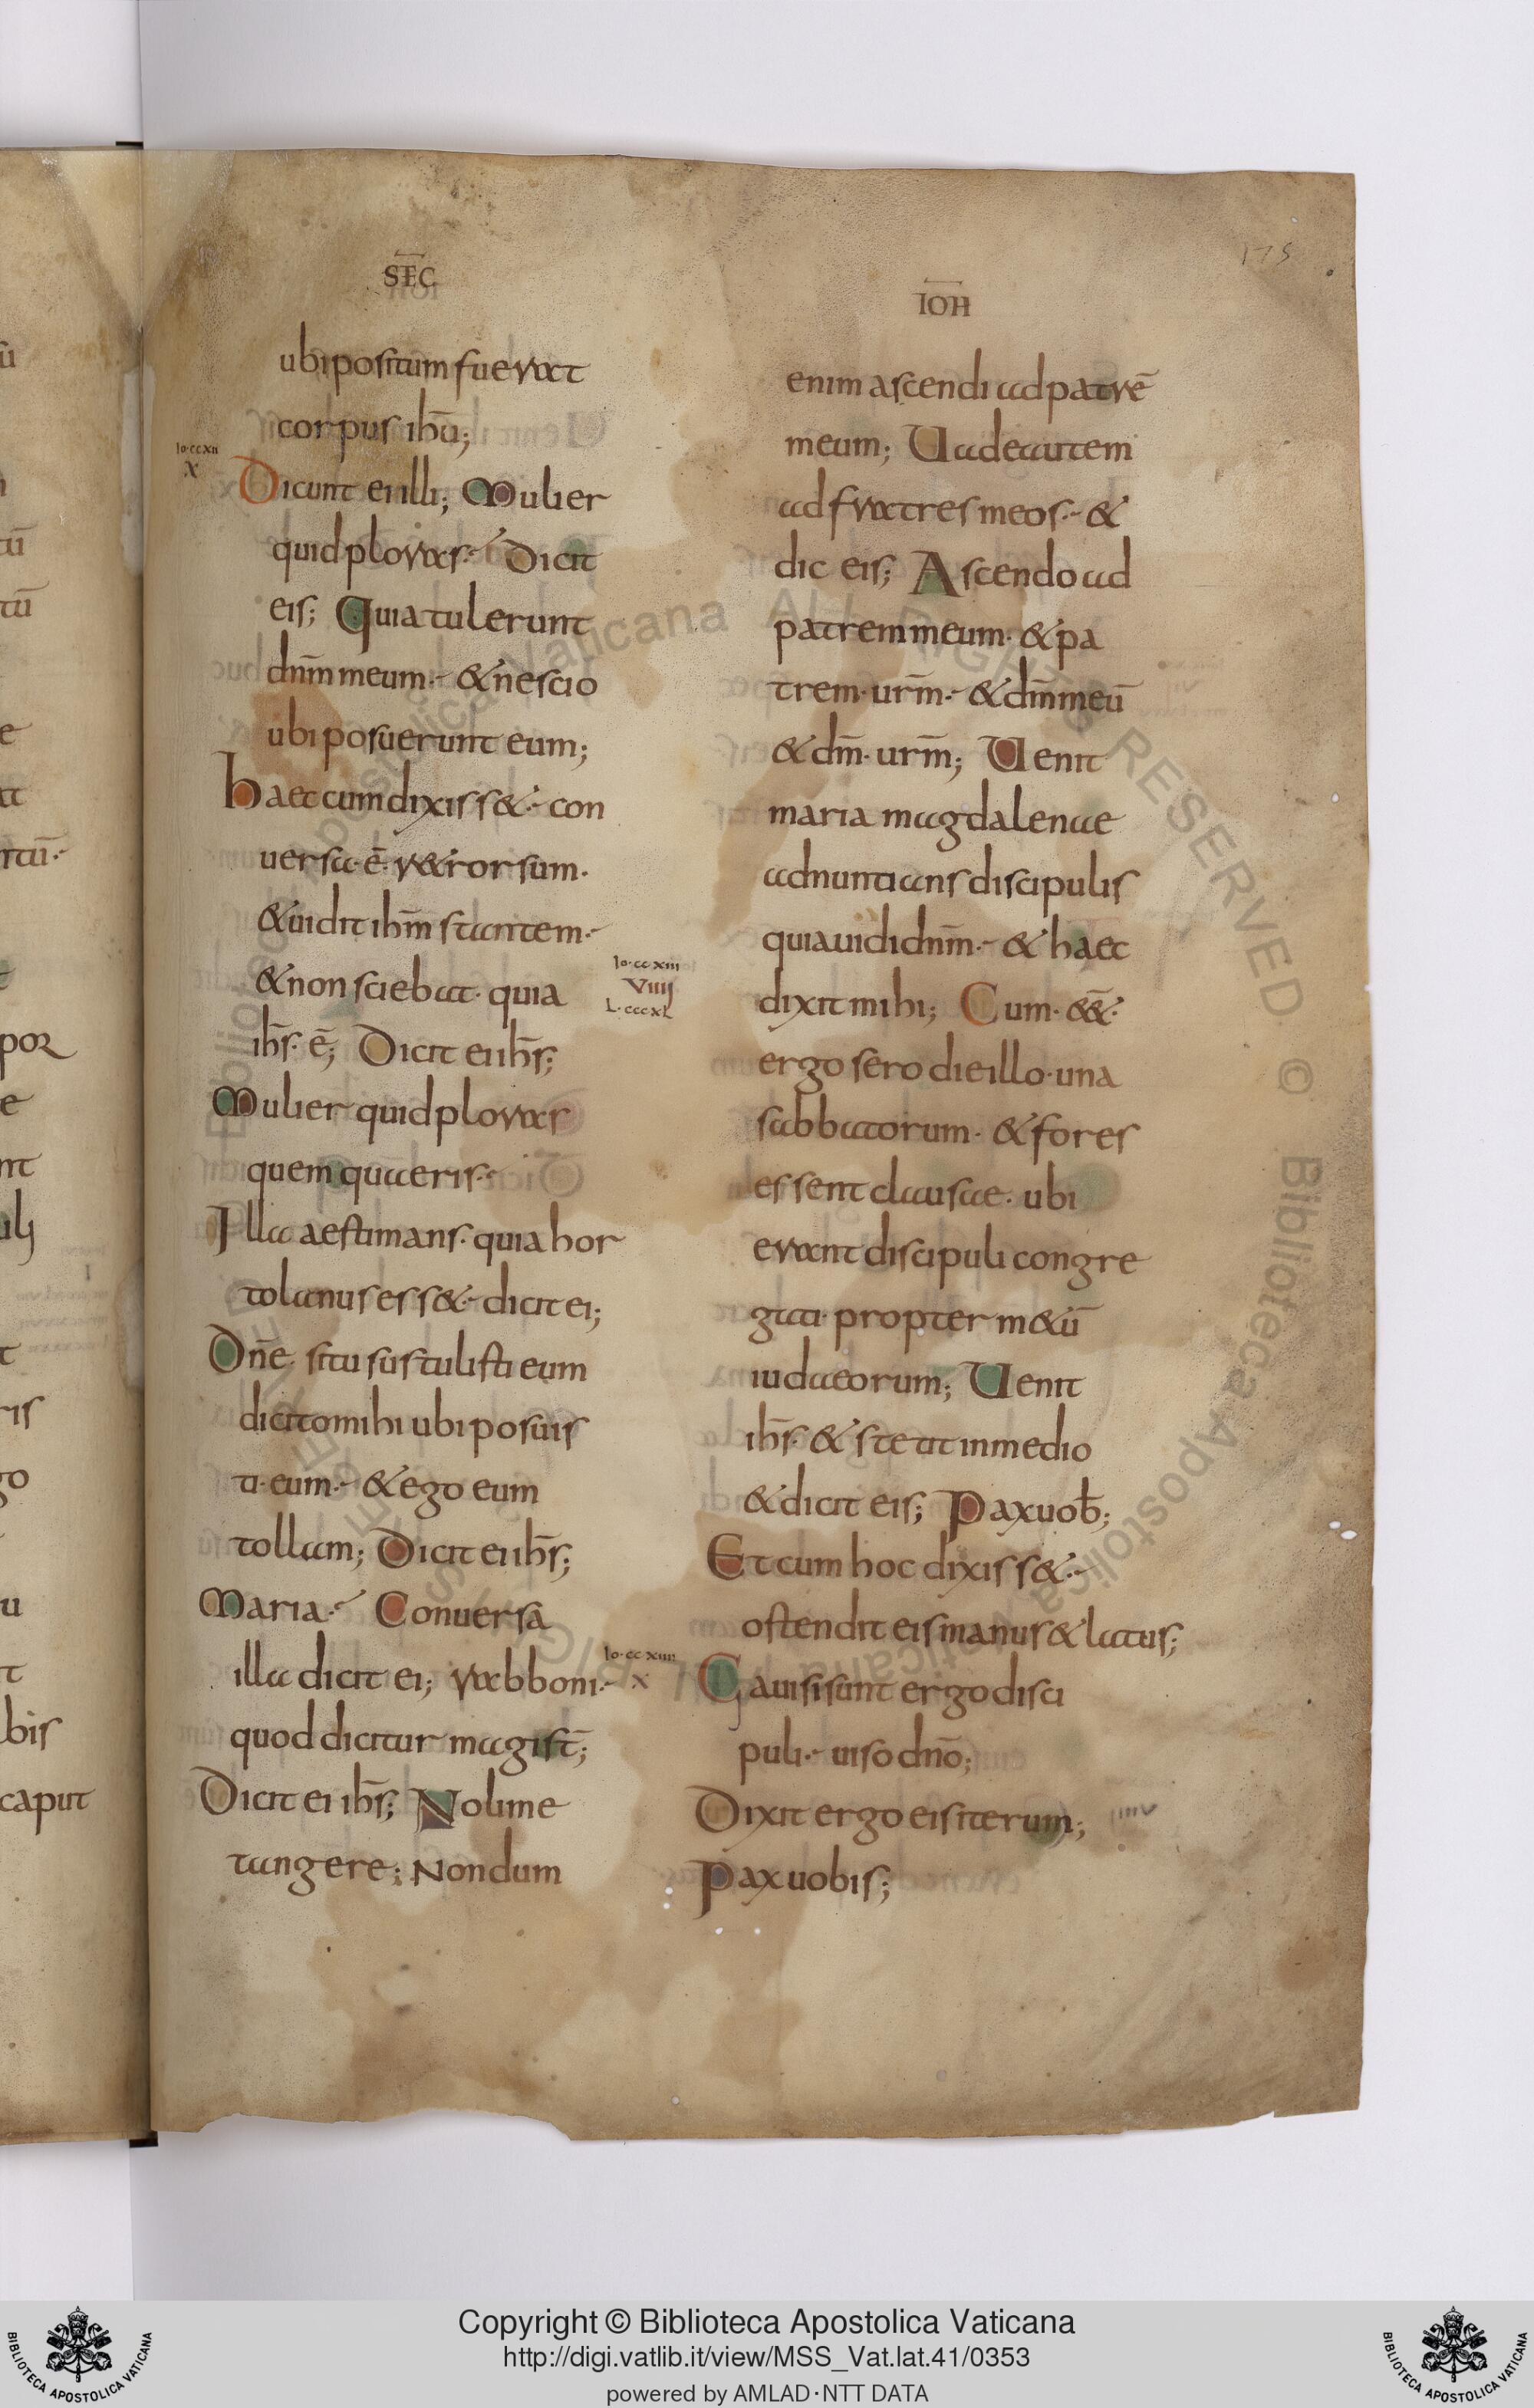 SEC̅
ubi positum fuerat
corpus ihū;
Io·ccxii
X
Dicunt ei illi; Mulier
quid ploras·:~ Dicit
eis; Quia tulerunt
dnm̄ meum·:~ & nescio
ubi posuerunt eum;
Haec cum dixiss&·:~ con
uersa·ē· r&rorsum·
& uidit ihm̄ stantem·:~
& non sciebat· quia
Io·ccxiii
VIIII
L·cccxl
ihs̄·ē; Dicit ei ihs̄;
Mulier quid ploras
quem quaeris·:~
Illa aestimans· quia hor
tolanus ess&·:~ dicit ei;
Dnē· si tu sustulisti eum
dicito mihi ubi posuis
ti· eum·:~ & ego eum
tollam; Dicit ei ihs̄;
Maria·:~ Conuersa
illa dicit ei; rabboni·:~
quod dicitur magist̄;
Dicit ei ihs̄; Noli me
tangere; Nondum
IOH̅
175
enim ascendi ad patrē
meum; Uade autem
ad fratres meos·:~ &
dic eis; Ascendo ad
patrem meum· & pa
trem· urm̄·:~ & dm̄ meū
& dm̄· urm̄; Uenit
maria magdalenae
adnuntians discipulis
quia uidi dnm̄·:~ & haec
dixit mihi; Cum· &&̄·
ergo sero die illo· una
sabbatorum· & fores
essent clausae· ubi
erant discipuli congre
gati· propter m&ū
iudaeorum; Uenit
ihs̄· & stetit in medio
& dicit eis; Pax uob̄;
Et cum hoc dixiss&·:~
ostendit eis manus & latus;
Io·ccxiiii
X
Gauisi sunt ergo disci
puli·:~ uiso dnō;
Dixit ergo eis iterum;
Pax uobis;
Copyright © Biblioteca Apostolica Vaticana
http://digi.vatlib.it/view/MSS_Vat.lat.41/0353
powered by AMLAD·NTT DATA